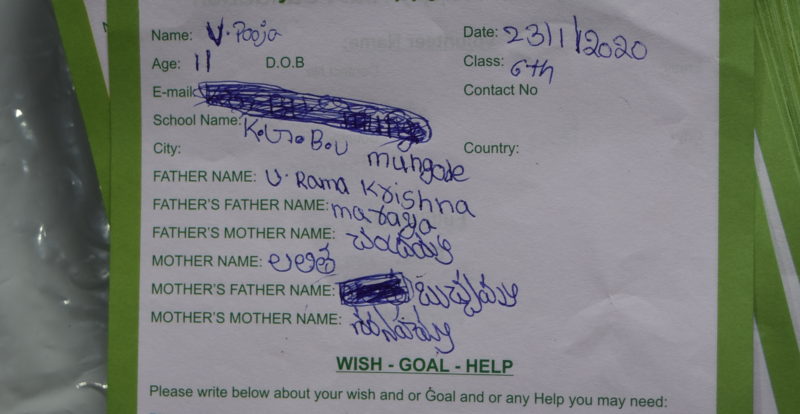 Name: V. Pooja Date: 23/1/2020
Age: 11 D.O.B Class: 6th
E-mail: Contact No
School Name: K.G.B.V
City: mungode Country:
FATHER NAME: V. Rama Krishna
FATHER'S FATHER NAME: maraya
FATHER'S MOTHER NAME:
MOTHER NAME: లలిత
MOTHER'S FATHER NAME:
MOTHER'S MOTHER NAME:
WISH - GOAL - HELP
Please write below about your wish and or Goal and or any Help you may need: